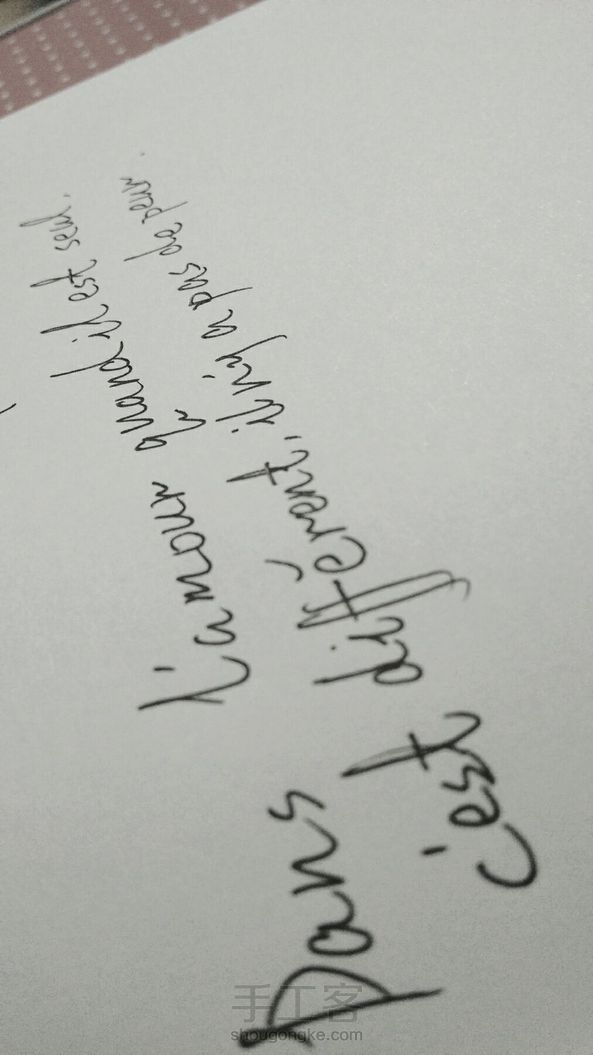 Dans l'amour quand il est seul.
c'est différent, il n'y a pas de peur.
手工客
shougongke.com